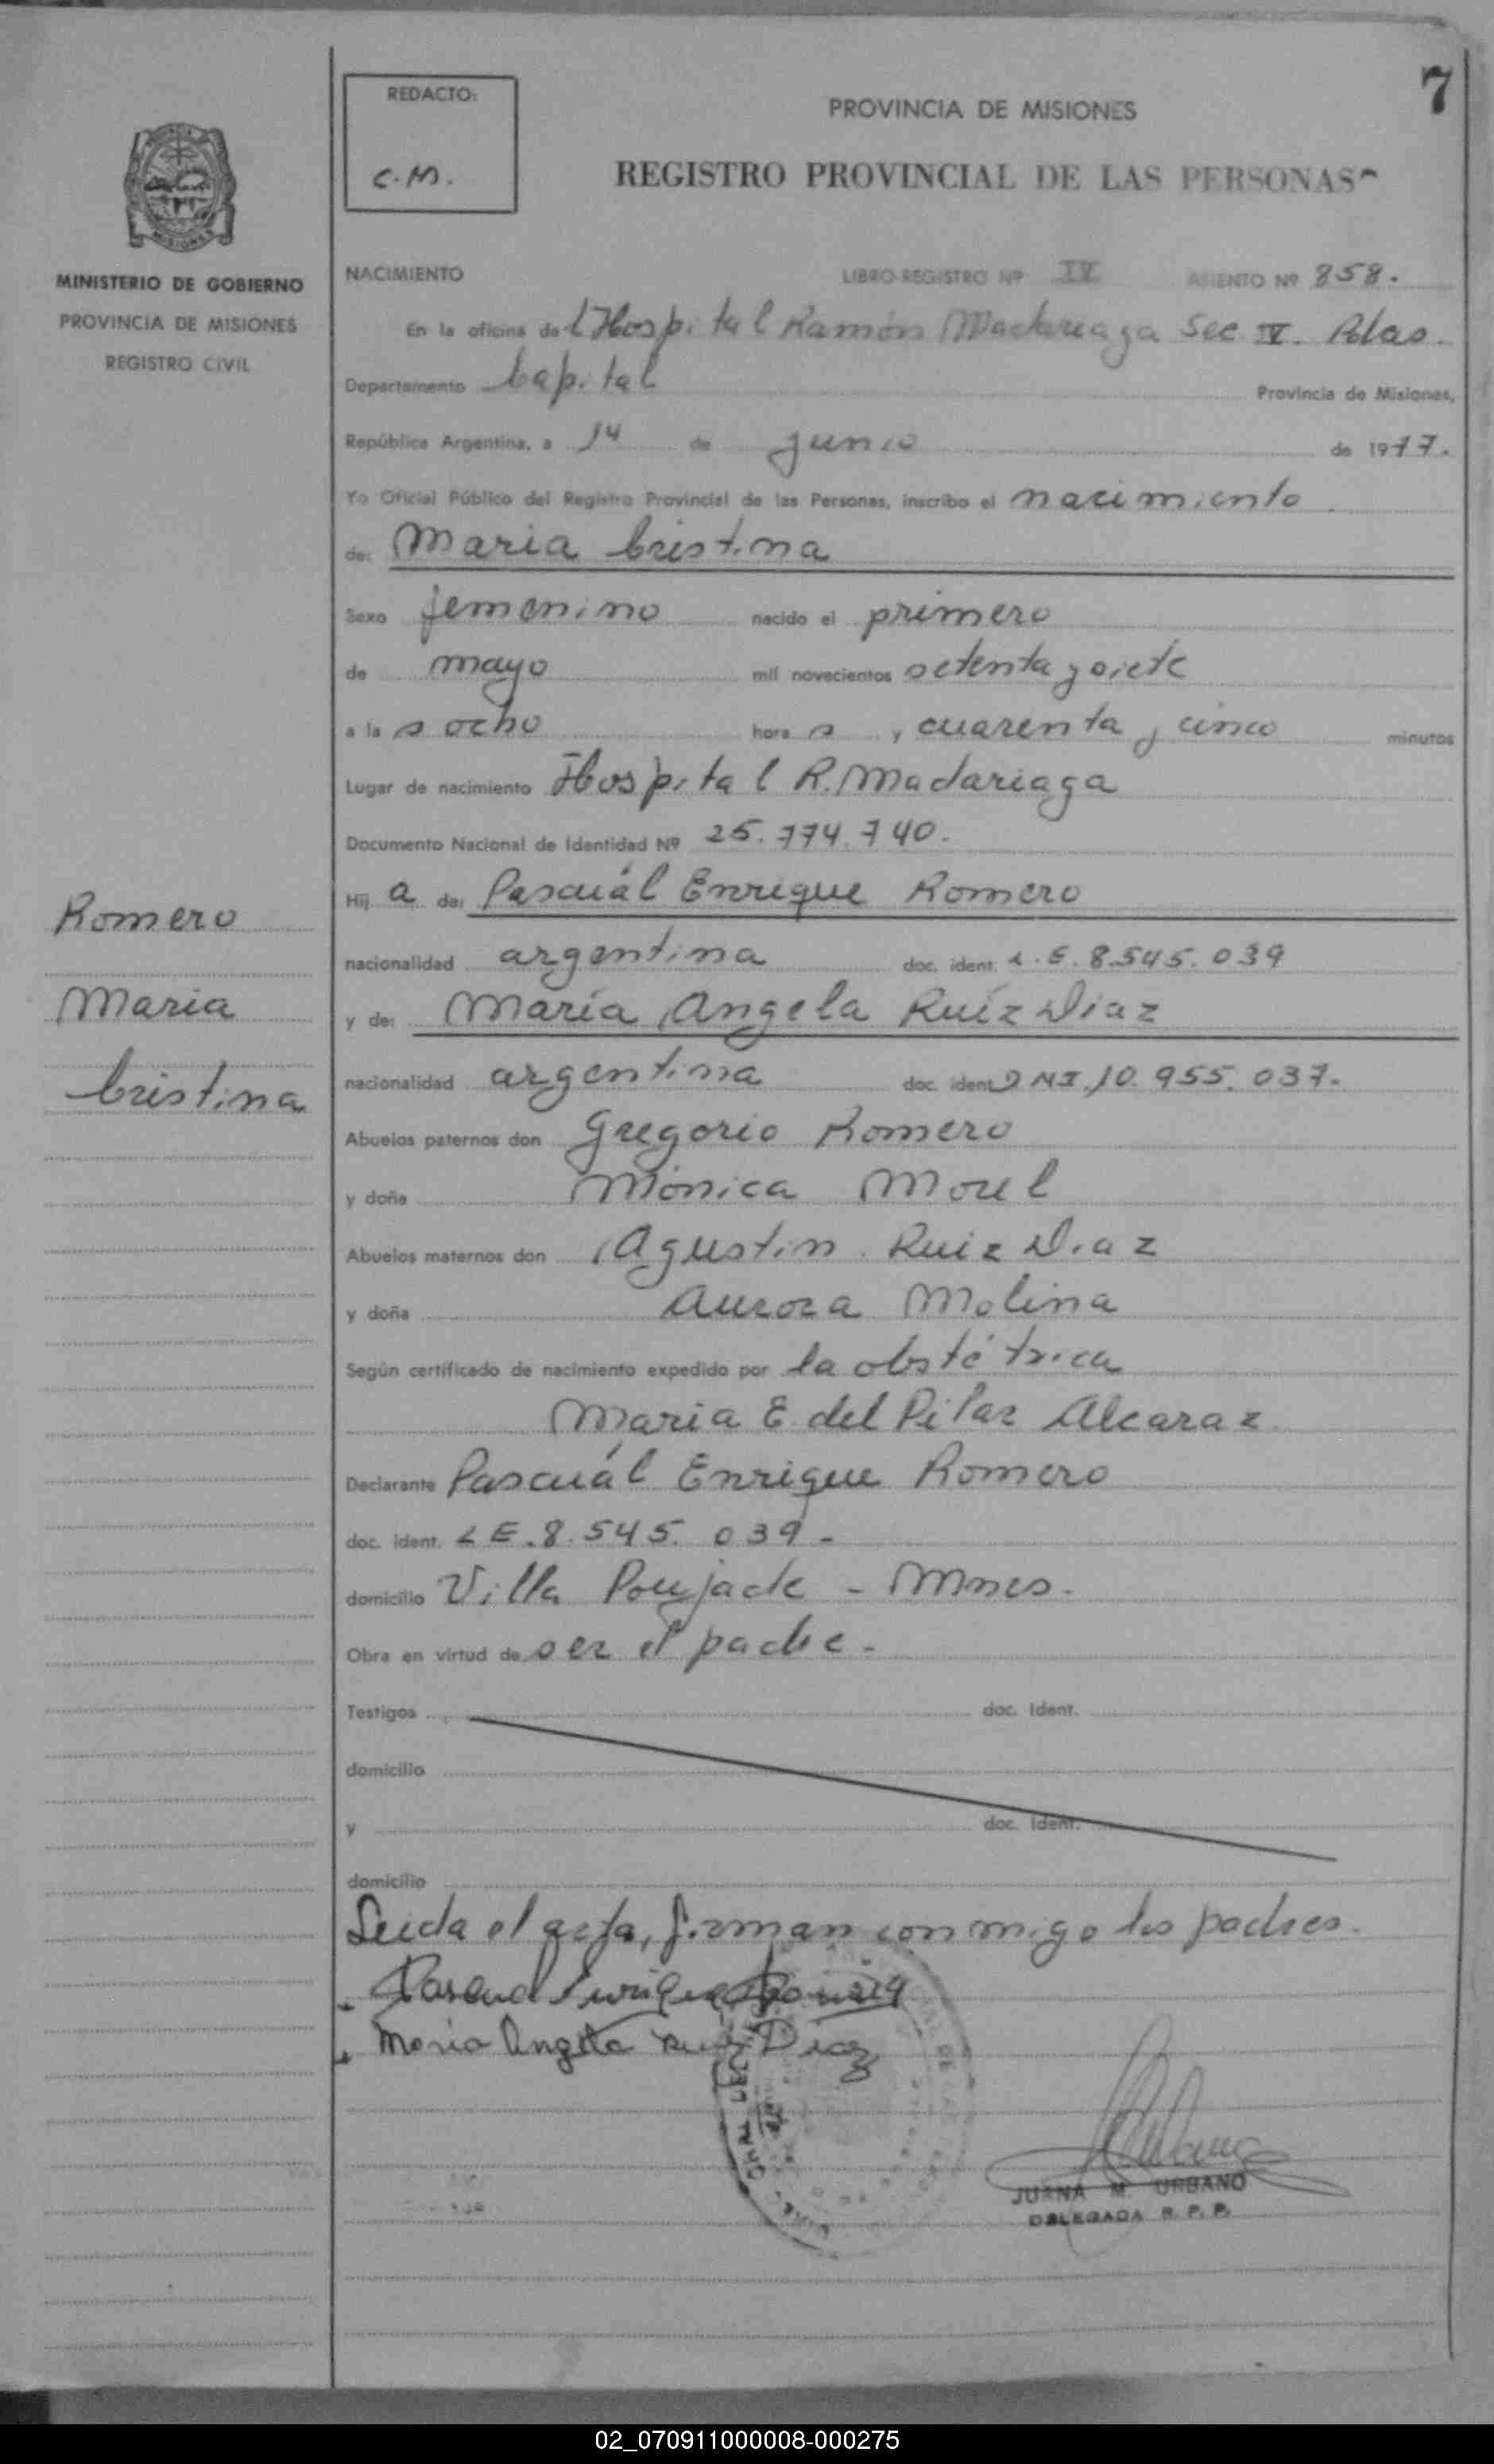 7
REDACTO:
C.M.
PROVINCIA DE MISIONES
REGISTRO PROVINCIAL DE LAS PERSONAS
MISIONES
MINISTERIO DE GOBIERNO
PROVINCIA DE MISIONES
REGISTRO CIVIL
NACIMIENTO LIBRO-REGISTRO Nº IV ASIENTO Nº 858.
En la oficina del Hospital Ramón Madariaga Sec IV. Pdas.
Departamento Capital Provincia de Misiones,
República Argentina, a 14 de junio de 1977.
Yo Oficial Público del Registro Provincial de las Personas, inscribo el nacimiento
de: Maria Cristina
Sexo femenino nacido el primero
de mayo mil novecientos setenta y siete
a las ocho horas, cuarenta y cinco minutos
Lugar de nacimiento Hospital R. Madariaga
Documento Nacional de Identidad Nº 25.774.740.
Hija de: Pascuál Enrique Romero
nacionalidad argentina doc. ident. L.E. 8.545.039
y de: María Angela Ruíz Diaz
nacionalidad argentina doc. ident DNI. 10.955.037.
Abuelos paternos don Gregorio Romero
y doña Mónica Morel
Abuelos maternos don Agustin Ruiz Diaz
y doña Aurora Molina
Según certificado de nacimiento expedido por la obstétrica
Maria E. del Pilar Alcaraz
Declarante Pascuál Enrique Romero
doc. ident. LE. 8.545.039-
domicilio Villa Poujade - Mnes.
Obra en virtud de ser el padre.-
Testigos doc. Ident.
domicilio
y doc. Ident.
domicilio
Leida el acta, firman conmigo los padres.
Pascual Enrique Romero
Maria Angela Ruiz Diaz
JUANA M. URBANO
DELEGADA R. P. P.
Romero
Maria
Cristina
02_070911000008-000275